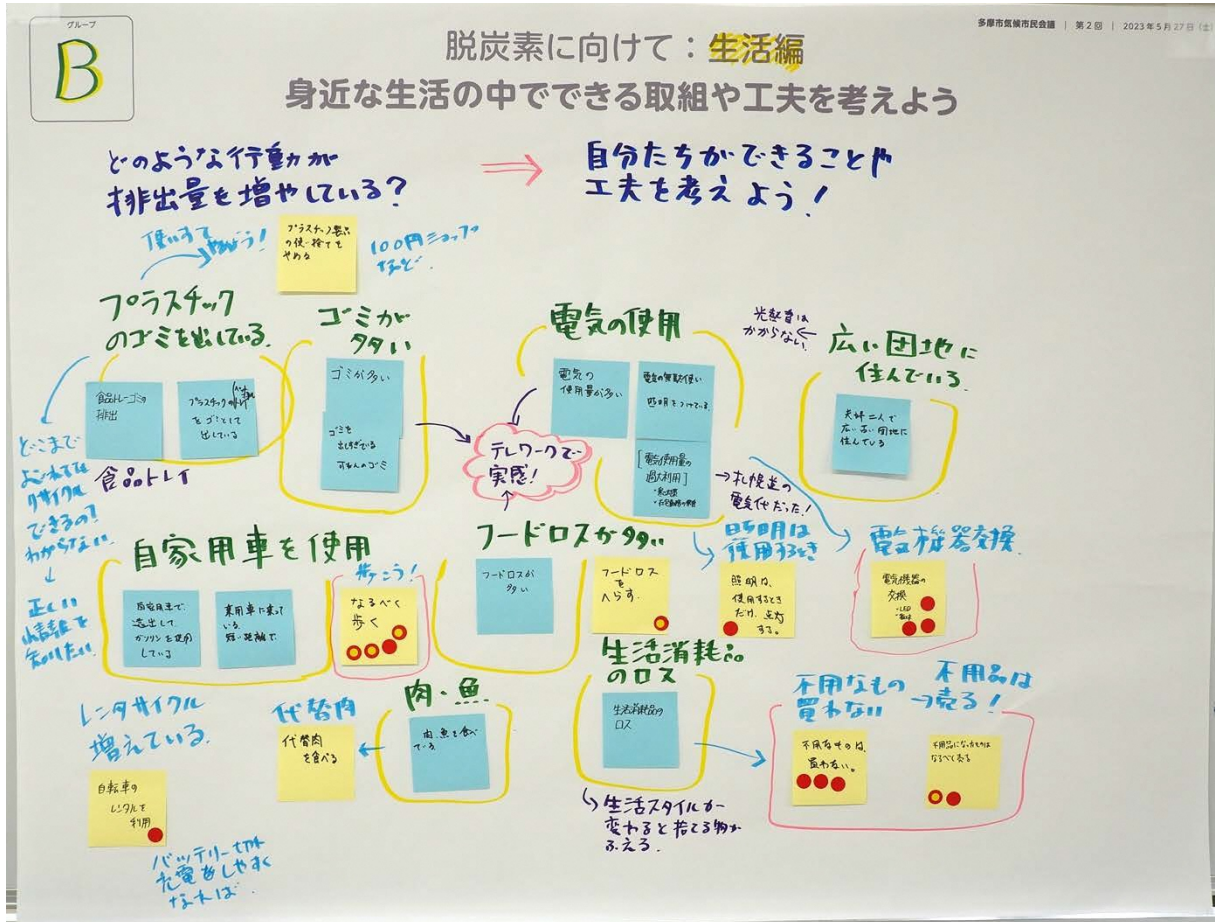 グループ
B
多摩市気候市民会議 | 第2回 | 2023年5月27日(土)
脱炭素に向けて：生活編
身近な生活の中でできる取組や工夫を考えよう
どのような行動が
排出量を増やしている？
自分たちができることや
工夫を考えよう！
使いすて
やめよう！
プラスチック製品
の使い捨てを
やめる
100円ショップ
など
プラスチック
のゴミを出している
食品トレーゴミの
排出
プラスチック
をゴミとして
出している
食品トレイ
どこまで
よごれてても
リサイクル
できるの？
わからない
正しい
情報を
知りたい
ゴミが
多い
ゴミが多い
ゴミを
出しすぎている
電気の使用
電気の
使用量が多い
電気の無駄使い
照明をつけている
電気使用量の
過大利用
テレワークで
実感！
→札幌並の
電気代だった！
光熱費は
かからない
広い団地に
住んでいる
夫婦二人で
広い古い団地に
住んでいる
自家用車を使用
自家用車で
遠出して
ガソリンを使用
している
乗用車に乗って
いる
短い距離で
歩こう！
なるべく
歩く
フードロスが多い
フードロスが
多い
フードロス
を
へらす。
照明は
使用するとき
照明は、
使用するとき
だけ、点灯
する。
電気機器交換
電気機器の
交換
・LED
レンタサイクル
増えている
自転車の
レンタルを
利用
バッテリー切れ
充電をしやすく
なれば
代替肉
代替肉
を食べる
肉・魚
肉、魚を食べ
ている
生活消耗品
のロス
生活消耗品の
ロス
生活スタイルが
変わると捨てる物が
ふえる
不用なもの
買わない
→不用品は
売る！
不用なものは、
買わない。
不用品になったものは
なるべく売る